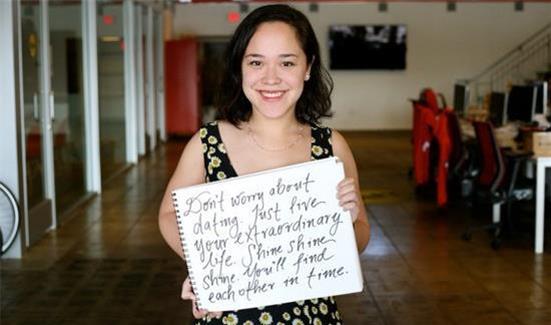 Don't worry about
dating. Just live
your extraordinary
life. Shine shine
shine. You'll find
each other in time.